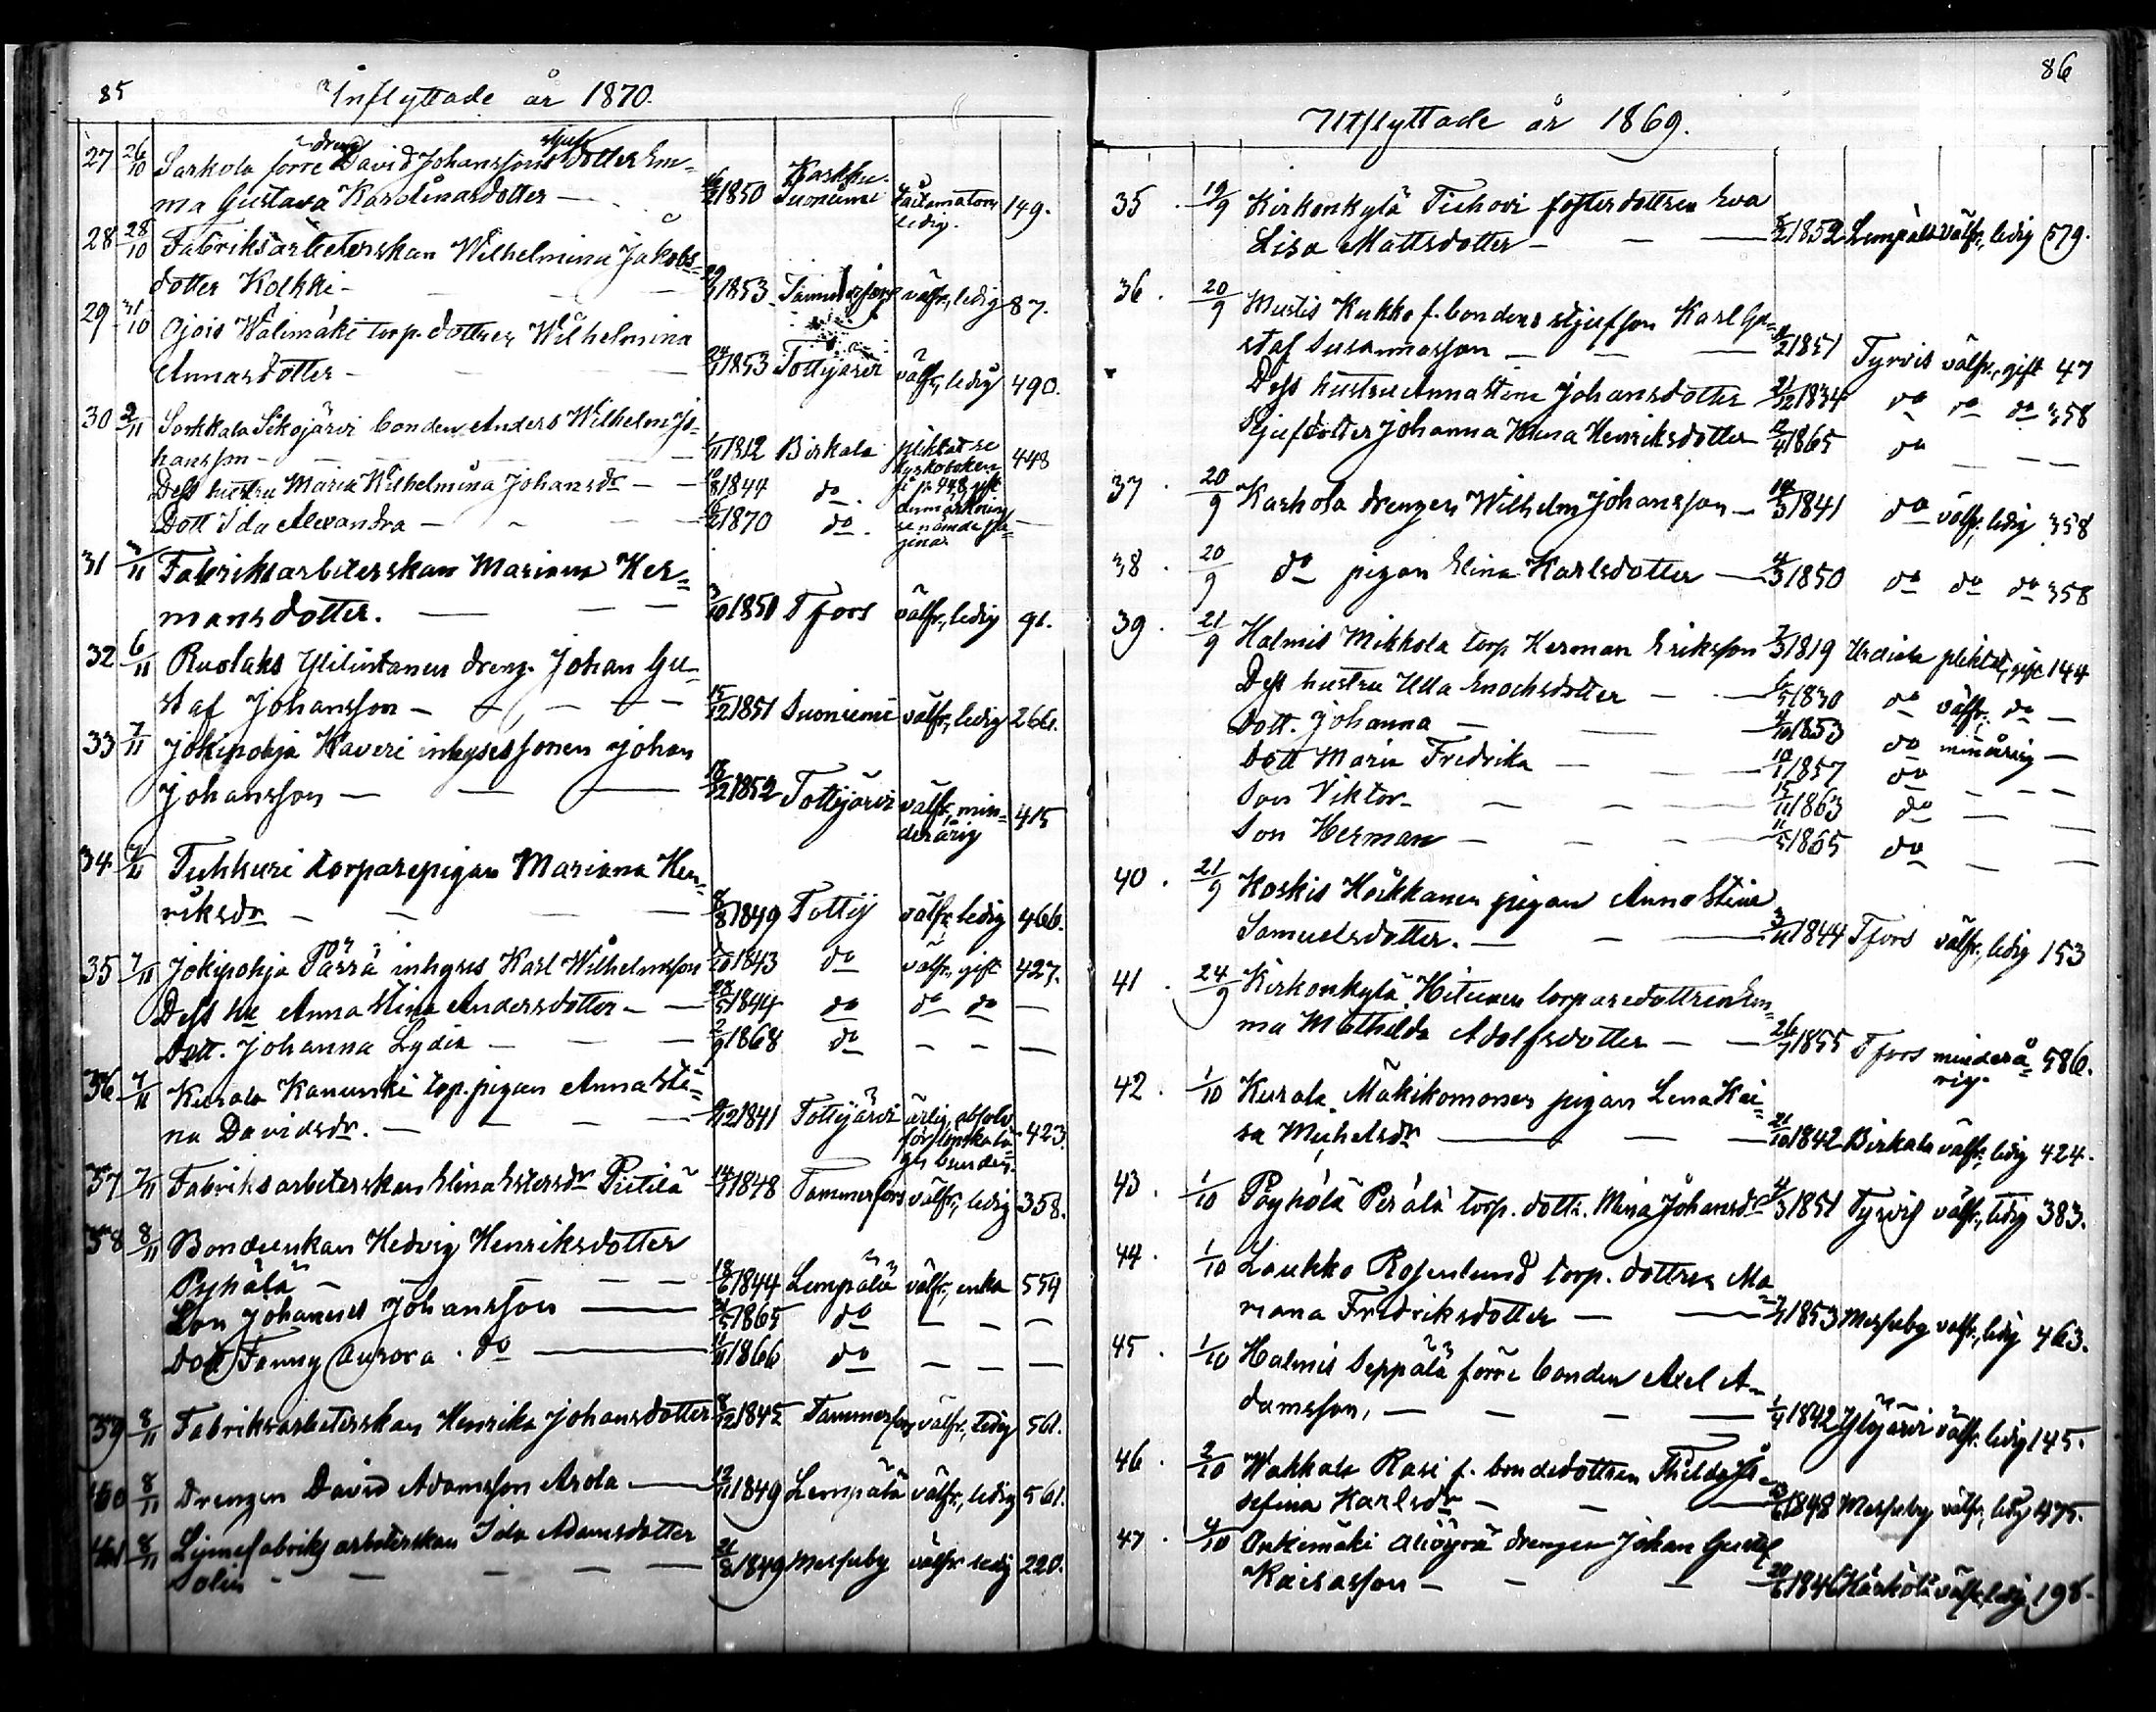 85
Inflyttade år 1870.
27 26/10 Sarkola förre dreng David Johanssons styfdotter Em-
ma Gustava Karolinasdotter — 1850 Karkku Suoniemi ledig. 149.
28 28/10 Fabriksarbeterskan Wilhelmina Jakobs-
dotter Kolkki — 1853 Tammerfors välfr., ledig 87.
29 31/10 Ojois Wälimäki torp. dottren Wilhelmina
Annasdotter — 1853 Tottijärvi välfr., ledig 490.
30 2/11 Sorkkala Sikojärvi bonden Anders Wilhelm Jo-
hansson — 1812 Birkala pliktat se kyrkoboken 448
Dess hustru Maria Wilhelmina Johansdr — 1844 do
Dott Ida Alexandra — 1870 do.
31 3/11 Fabriksarbeterskan Mariana Her-
mansdotter. — 3/10 1850 Tfors välfr., ledig 91.
32 6/11 Ruolaks Ylilintanen dreng. Johan Gu-
staf Johansson — 15/12 1851 Suoniemi välfr., ledig 266.
33 7/11 Jokipohja Kaveri inhysessonen Johan
Johansson — 1852 Tottijärvi välfr., min-
derårig 415
34 7/11 Tuhkuri torparepigan Mariana Hen-
riksdr — 8/8 1849 Tottij välfr., ledig 466.
35 7/11 Jokipohja Pärrä inhyses Karl Wilhelmsson 1843 do välfr., gift 427.
Dess hu Anna Stina Andersdotter — 28/5 1844 do do do —
Dott. Johanna Lydia — 2/9 1868 do — — —
36 7/11 Kurala Kanunki torp. pigan Anna Sti-
na Davidsdr. — 1841 Tottijärvi ärlig, absolv. 423.
37 7/11 Fabriksarbeterskan Elina Estersdr Pietilä 1848 Tammerfors välfr., ledig 358.
38 8/11 Bondeenkan Hedvig Henriksdotter
Pyhälä — 18/6 1844 Lempälä välfr., enka 559
Son Johannes Johansson — 1865 do — — —
Dott Fanny Aurora do — 1866 do — — —
39 8/11 Fabriksarbeterskan Henrika Johansdotter 8/12 1845 Tammerfors välfr., ledig 561.
40 8/11 Drengen David Adamsson Arola — 1849 Lempälä välfr., ledig 561.
41 8/11 Linnefabriks arbeterskan Ida Adamsdotter
Solin — 21/8 1849 Messuby välfr. ledig 220.
86
Utflyttade år 1869.
35. 19/9 Kirkonkylä Tiehovi fosterdottren Eva
Lisa Mattsdotter — 1852 Lempälä välfr., ledig 579.
36. 20/9 Mustis Kukko f. bondens styfson Karl Gu-
staf Susannasson — 1851 Tyrvis välfr., gift 47
Dess hustru Anna Stina Johansdotter 21/12 1834 do do do 358
Styfdotter Johanna Elina Henriksdotter 1865 do — —
37. 20/9 Karhola drengen Wilhelm Johansson — 1841 do välfr., ledig 358
38. 20/9 do pigan Elina Karlsdotter — 1850 do do do 358
39. 21/9 Halmis Mikkola torp Herman Eriksson 1819 Urdiala pliktat, gift 144
Dess hustru Ulla Enochsdotter — 1830 do välfr. do —
Dott. Johanna — 1853 do minårig —
Dott Maria Fredrika — 1857 do — —
Son Viktor — 1863 do — —
Son Herman — 1865 do — —
40. 21/9 Koskis Hoikkanen pigan Anna Stina
Samuelsdotter. — 1844 Tfors välfr., ledig 153
41. 24/9 Kirkonkylä Hituinen torparedottren Em-
ma Mathilda Adolfsdotter — 26/7 1855 Tfors minderå-
rig. 586.
42. 1/10 Kurala Mäkikomonen pigan Lena Kai-
sa Michelsdr — 21/10 1842 Birkala välfr., ledig 424.
43. 1/10 Pöyhölä Perälä torp. dottr. Mina Johansdr 1851 Tyrvis välfr., ledig 383.
44. 1/10 Laukko Rosenlund torp. dottren Ma-
riana Fredriksdotter — 1853 Messuby välfr., ledig 463.
45. 1/10 Halmis Seppälä förre bonden Axel A-
damsson, — 1842 Ylöjärvi välfr. ledig 145.
46. 2/10 Wakkala Rasi f. bondedottren Thilda Jo-
sefina Karlsdr — 1848 Messuby välfr., ledig 475.
47. 4/10 Onkemäki Alisyrä drengen Johan Gustaf
Kaisasson — 1846 Kärkölä välfr., ledig 198.